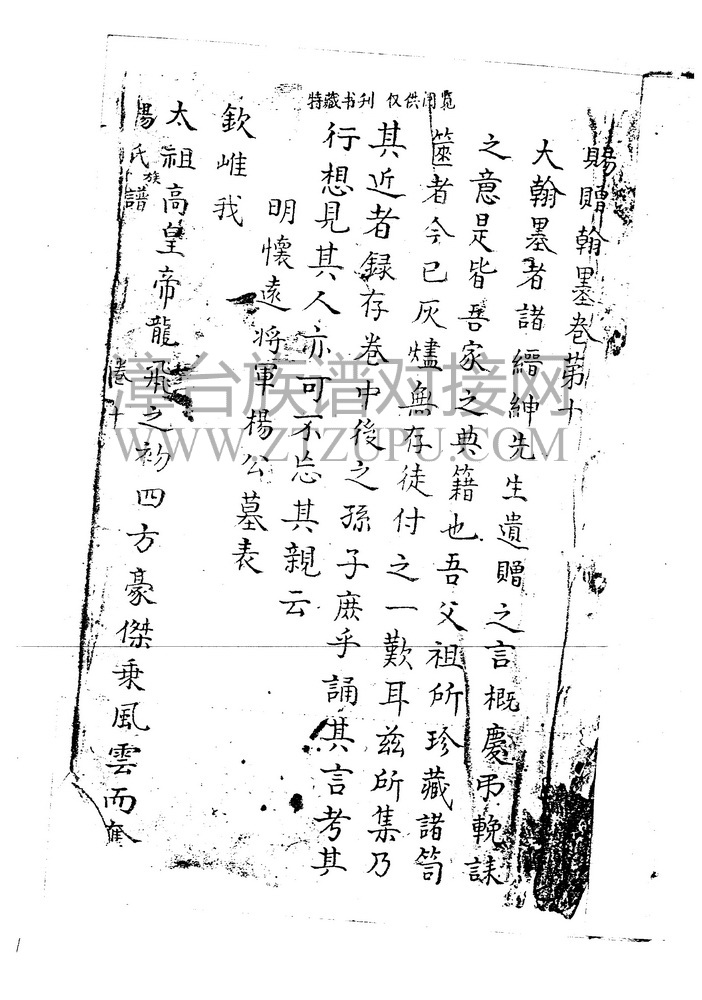 特藏书刊 仅供阅览
賜贈翰墨卷第十
大翰墨者諸縉紳先生遺贈之言概慶弔輓誄
之意是皆吾家之典籍也吾父祖所珍藏諸笥
篋者今已灰燼無存徒付之一歎耳兹所集乃
其近者録存卷中後之孫子庶乎誦其言考其
行想見其人亦可不忘其親云
明懷遠将軍楊公墓表
欽惟我
太祖高皇帝龍飛之初四方豪傑乗風雲而奮
楊氏族譜
卷十
漳台族谱对接网
WWW.ZTZUPU.COM
1